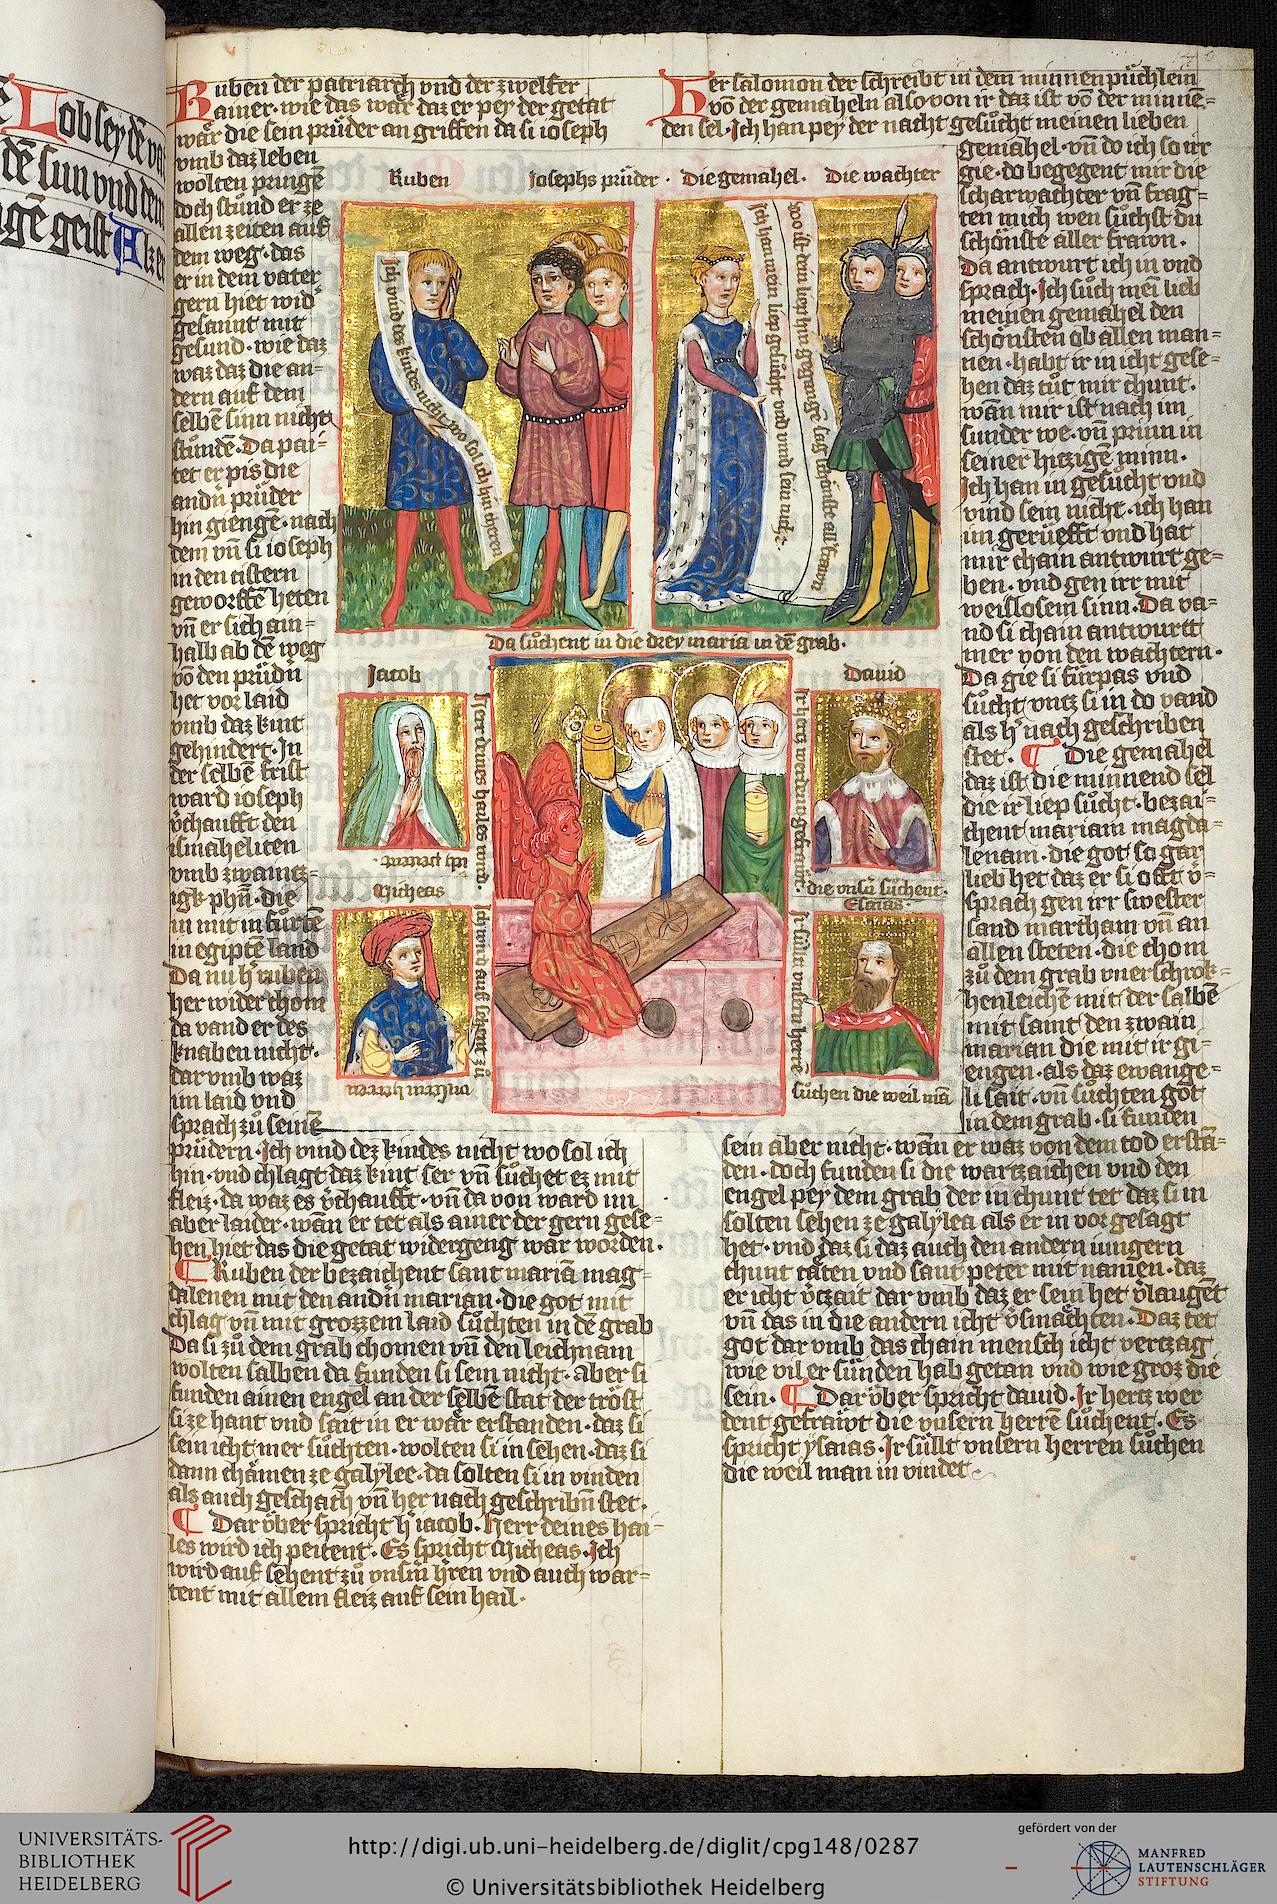 Lob sey dē va
dē sun vnd dem
geist A
Ruben der patriarch vnd der zwelfer
ainer · wie das wār daz er per der getat
wār die sein prūder an griffen da si ioseph
vmb daz leben
wolten pringē
doch stūnd er ze
allen zeiten auf
dem weg · das
er in dem vater
gern hiet wid'
gesannt mit
gesund · wie daz
waz daz die an=
dern auf dem
selbē sinn nicht
stūndē · Da pai=
tet er pis die
andn̄ prūder
hin giengē · nach
dem vn̄ si ioseph
in den cistern
geworffē heten
vn̄ er sich ain=
halb ab dē weg
vō den prūdn̄
het vor laid
vmb daz kint
gehindert · In
der selbē frist
ward ioseph
v'chaufft den
ismaheliten
vmb zwaincz=
igk phn̄ · die
in mit in fūrtē
in egiptē land
Da nu h' ruben
her wider chom
da vand er des
knaben nicht ·
dar vmb waz
im laid vnd
sprach zū seinē
prūdern · Ich vind dez kindes nicht wo sol ich
hin · vnd chlagt daz kint ser vn̄ sūchet ez mit
fleiz · da waz es v'chaufft · vn̄ da von ward im
aber laider · wān er tet als ainer der gern gese=
hen hiet das die getat widergeng wār worden ·
Ruben der bezaichent sant mariā mag=
dalenen mit den andn̄ marian · die got mit
chlag vn̄ mit grozzem laid sūchten in dē grab
Da si zū dem grab chomen vn̄ den leichnam
wolten salben da funden si sein nicht · aber si
funden ainen engel an der selbē stat der trōst
si ze hant vnd sait in er wār erstanden · daz si
sein icht mer sūchten · wolten si in sehen · daz si
dann chāmen ze galylee · da solten si in vinden
als auch geschach vn̄ her nach geschribn̄ stet ·
Dar vber spricht h' iacob · Herr deines hai=
les wird ich peitent · Es spricht Micheas · Ich
wird auf sehent zū vnserm h'ren vnd auch war=
tent mit allem fleiz auf sein hail ·
Her salomon der schreibt in dem minnen pūchlein
vō der gemaheln also von ir daz ist vō der minnē=
den sel · Ich han pey der nacht gesūcht meinen lieben
gemahel · vn̄ do ich so irr
gie · do begegent mir die
scharwachter vn̄ frag=
ten mich wen sūchst du
schōnste aller frawn ·
Da antwurt ich in vnd
sprach · Ich sūch mēi lieb
meinen gemahel den
schōnsten ob allen man=
nen · habt ir in icht gese=
hen daz tūt mir chunt ·
wān mir ist nach im
sunder we · vn̄ prinn in
seiner hitzigē minn ·
Ich han in gesūcht vnd
vind sein nicht · ich han
im gerūefft vnd hat
mir chain antwurt ge=
ben · vnd gen irr mit
weislosem sinn · Da va=
nd si chain antwurtt
mer von den wachtern ·
Da gie si fūrpas vnd
sūcht vntz si in do vand
als h' nach geschriben
stet · Die gemahel
daz ist die minnend sel
die ir liep sūcht · bezai=
chent mariam magda=
lenam · die got so gar
lieb het daz er si offt v'=
sprach gen irr swester
sand martham vn̄ an
allen steten · die chom
zū dem grab vnerschrok=
henleichē mit der salbē
mit samt den zwain
marian die mit ir gi=
engen · als daz ewange=
li sait · vn̄ sūchten got
in dem grab · si funden
sein aber nicht · wān er waz von dem tod erstā=
den · doch funden si die wartzaichen vnd den
engel pey dem grab der in chunt tet daz si in
solten sehen ze galylea als er in vor gesagt
het · vnd daz si daz auch den andern iungern
chunt tāten vnd sant peter mit namen · daz
er icht v'czait dar vmb daz er sein het v'laugēt
vn̄ das in die andern icht v'smāchten · Daz tet
got dar vmb das chain mensch icht vertzag
wie vil er sūnden hab getan vnd wie groz die
sein · Dar vber spricht dauid · Ir hertz wer
dent gefrāwt die vnsern herrē sūchent · Es
spricht ysaias · Ir sūllt vnsern herren sūchen
die weil man in vindet
Ruben
Josephs prūder · Die gemahel · Die wachter
Ich vind des kindes nicht wo sol ich hin cheren
Ich han mein liep gesūcht vnd vind sein nicht ·
wo ist dein liep hin gegangē sag schōnste all' frawn
Da sūchent in die drey maria in dē grab ·
Jacob
Herr deines hailes wird ·
ich peitent
Dauid
Ir hertz werdent gefrāwt ·
die vnsn̄ sūchent ·
Micheas
Ich wird auf sehent zū
vnserm herren
Esaias ·
Ir sūllt vnsern herrē
sūchen die weil mā
UNIVERSITÄTS-
BIBLIOTHEK
HEIDELBERG
http://digi.ub.uni-heidelberg.de/diglit/cpg148/0287
© Universitätsbibliothek Heidelberg
gefördert von der
MANFRED
LAUTENSCHLÄGER
STIFTUNG